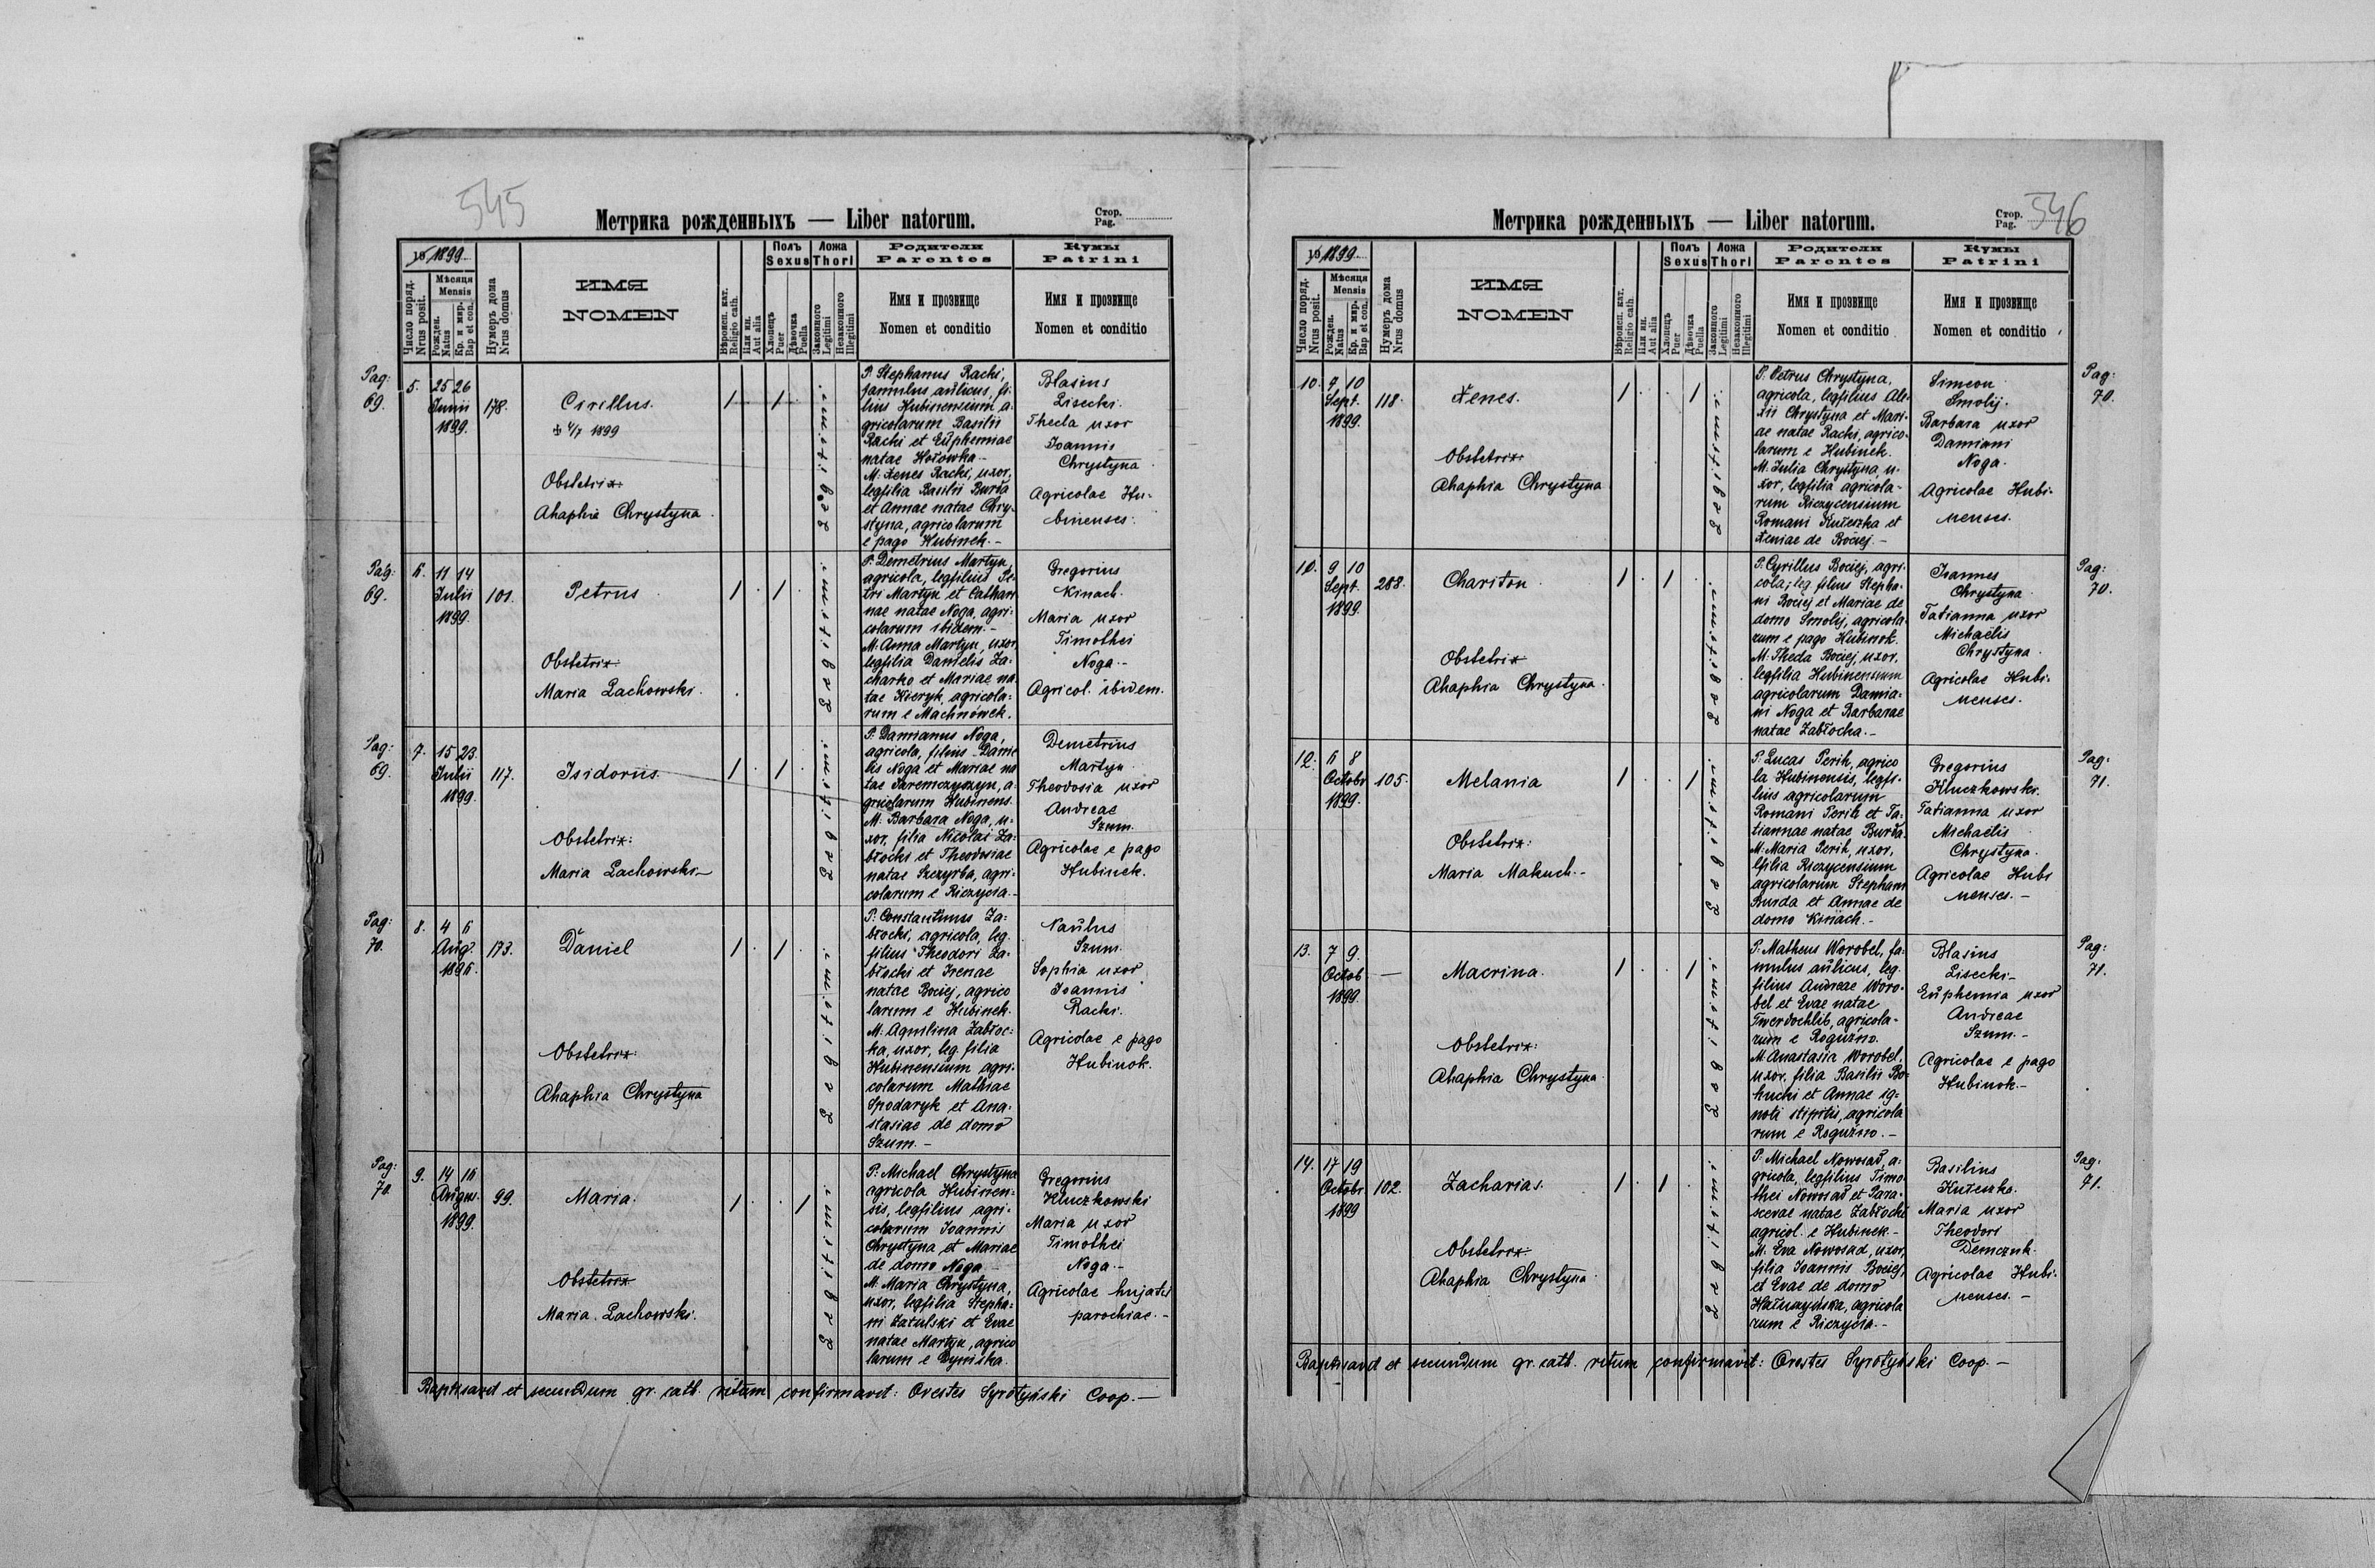 545
Метрика рожденныхъ — Liber natorum.
Стор.
Pag.
1899.
Число поряд.
Nrus posit.
Мѣсяця
Mensis
Рожден.
Natus
Кр. и мир.
Bap et con.
Нумеръ дома
Nrus domus
ИМЯ
NOMEN
Вѣроисп. кат.
Religio cath.
Или ин.
Aut alia
Полъ
Sexus
Хлопецъ
Puer
Дѣвочка
Puella
Ложа
Thori
Законного
Legitimi
Незаконного
Illegitimi
Родители
Parentes
Имя и прозвище
Nomen et conditio
Кумы
Patrini
Имя и прозвище
Nomen et conditio
Pag:
69.
5.
25 26
Junii
1899.
178.
Cirillus.
✠ 4/7 1899
Obstetrix:
Ahaphia Chrystyna.
1
1
legitimi
P: Stephanus Racki,
famulus aulicus, fi-
lius Hubinensium a-
gricolarum Basilii
Racki et Euphemiae
natae Hołowka.-
M: Xenes Racki, uxor,
legfilia Basilii Burda
et Annae natae Chry-
styna, agricolarum
e pago Hubinek.-
Blasius
Lisecki.
Thecla uxor
Joannis
Chrystyna.
Agricolae Hu-
binenses.
Pag:
69.
6.
11 14
Julii
1899.
101.
Petrus
Obstetrix
Maria Lachowski.
1
1
legitimi
P: Demetrius Martyn,
agricola, legfilius Pe-
tri Martyn et Cathari
nae natae Noga, agri-
colarum ibidem.-
M: Anna Martyn, uxor,
legfilia Danielis Za-
charko et Mariae na
tae Kieryk, agricola-
rum e Machnówek.
Gregorius
Kinach.
Maria uxor
Timothei
Noga.-
Agricol. ibidem.
Pag:
69.
7.
15 23.
Julii
1899.
117.
Isidorus.
Obstetrix:
Maria Lachowski-
1
1
legitimi
P: Damianus Noga,
agricola, filius Danie
lis Noga et Mariae na
tae Jaremczyszyn, a-
gricolarum Hubinens.
M: Barbara Noga, u-
xor, filia Nicolai Za-
błocki et Theodosiae
natae Szczyrba, agri-
colarum e Riczycia.-
Demetrius
Martyn
Theodosia uxor
Andreae
Szum.
Agricolae e pago
Hubinek.
Pag:
70.
8.
4 6
Aug.
173.
Daniel
Obstetrix:
Ahaphia Chrystyna
1
1
legitimi
P: Constantinus Za-
błocki, agricola, leg.
filius Theodori Za-
błocki et Irenae
natae Bociej, agrico
larum e Hubinek.
M: Aquilina Zabłoc-
ka, uxor, leg. filia
Hubinensium agri-
colarum Mathiae
Spodaryk et Ana-
stasiae de domo
Szum.-
Szum.
Sophia uxor
Joannis
Racki.
Agricolae e pago
Hubinok.
Pag:
70.
9.
14 16
August.
1899.
99.
Maria.
Obstetrix
Maria Lachowski.
1
1
legitimi
P: Michael Chrystyna
agricola Hubinen-
sis, legfilius agri-
colarum Joannis
Chrystyna et Mariae
de domo Noga.-
M: Maria Chrystyna,
uxor, legfilia Stepha-
ni Zatulski et Evae
natae Martyn, agrico
larum e Dyniska.
Gregorius
Kluczkowski
Maria uxor
Timothei
Noga.-
Agricolae hujatis
parochiae.-
Baptisavit et secundum gr. cath. ritum confirmavit: Orestes Syrotyński Coop.-
546
Метрика рожденныхъ — Liber natorum.
Стор.
Pag.
1899.
Число поряд.
Nrus posit.
Мѣсяця
Mensis
Рожден.
Natus
Кр. и мир.
Bap et con.
Нумеръ дома
Nrus domus
ИМЯ
NOMEN
Вѣроисп. кат.
Religio cath.
Или ин.
Aut alia
Полъ
Sexus
Хлопецъ
Puer
Дѣвочка
Puella
Ложа
Thori
Законного
Legitimi
Незаконного
Illegitimi
Родители
Parentes
Имя и прозвище
Nomen et conditio
Кумы
Patrini
Имя и прозвище
Nomen et conditio
Pag:
70.
10.
9 10
Sept.
1899.
118.
Xenes.
Obstetrix:
Ahaphia Chrystyna
1
1
legitimi
P: Petrus Chrystyna,
agricola, legfilius Ale-
xii Chrystyna et Mari-
ae natae Racki, agrico-
larum e Hubinek.
M: Julia Chrystyna, u-
xor, legfilia agricola-
rum Riczycensium
Romani Kułeszka et
Xeniae de Bociej.-
Simeon
Smolij.
Barbara uxor
Damiani
Noga.
Agricolae Hubi-
nenses.
Pag:
70.
9 10
Sept.
1899.
288.
Chariton.
Obstetrix
Ahaphia Chrystyna.
1
1
legitimi
P: Cyrillus Bociej, agri-
cola, leg. filius Stepha-
ni Bociej et Mariae de
domo Smolij, agricola-
rum e pago Hubinok.
M: Thecla Bociej, uxor,
legfilia Hubinensium
agricolarum Damia-
ni Noga et Barbarae
natae Zabłocka.-
Joannes
Chrystyna.
Tatianna uxor
Michaëlis
Chrystyna.
Agricolae Hubi-
nenses.
Pag:
71.
12.
6 8
Octobr
1899.
105.
Melania
Obstetrix:
Maria Makuch.-
1
1
legitimi
P: Lucas Perih, agrico
la Hubinensis, legfi-
lius agricolarum
Romani Perih et Ta-
tiannae natae Burda.
M: Maria Perih, uxor,
lfilia Riczycensium
agricolarum Stephani
Burda et Annae de
domo Kinach.-
Gregorius
Kluczkowski.
Tatianna uxor
Michaëlis
Chrystyna.
Agricolae Hubi
nenses.-
Pag:
71.
13.
7 9.
Octob.
1899.
—
Macrina.
Obstetrix:
Ahaphia Chrystyna.
1
1
legitimi
P: Matheus Worobel, fa-
mulus aulicus, leg.
filius Andreae Woro-
bel et Evae natae
Twerdochlib, agricola-
rum e Roguźno.
M: Anastasia Worobel,
uxor, filia Basilii Bo-
huchi et Annae ig-
noti stipitis, agricola
rum e Roguźno.-
Blasius
Lisecki-
Euphemia uxor
Andreae
Szum.-
Agricolae e pago
Hubinok.-
Pag:
71.
14.
17 19
Octobr.
1899
102.
Zacharias.
Obstetrix
Ahaphia Chrystyna.
1
1
legitimi
P: Michael Nowosad, a-
gricola, legfilius Timo-
thei Nowosad et Para-
scevae natae Zabłocki
agricol. e Hubinek.-
M: Eva Nowosad, uxor,
filia Joannis Bociej,
et Evae de domo
agricola
rum e Riczycia.-
Basilius
Kułeszka.
Maria uxor
Theodori
Demczuk.
Agricolae Hubi-
nenses.-
Baptisavit et secundum gr. cath. ritum confirmavit: Orestes Syrotyński Coop.-